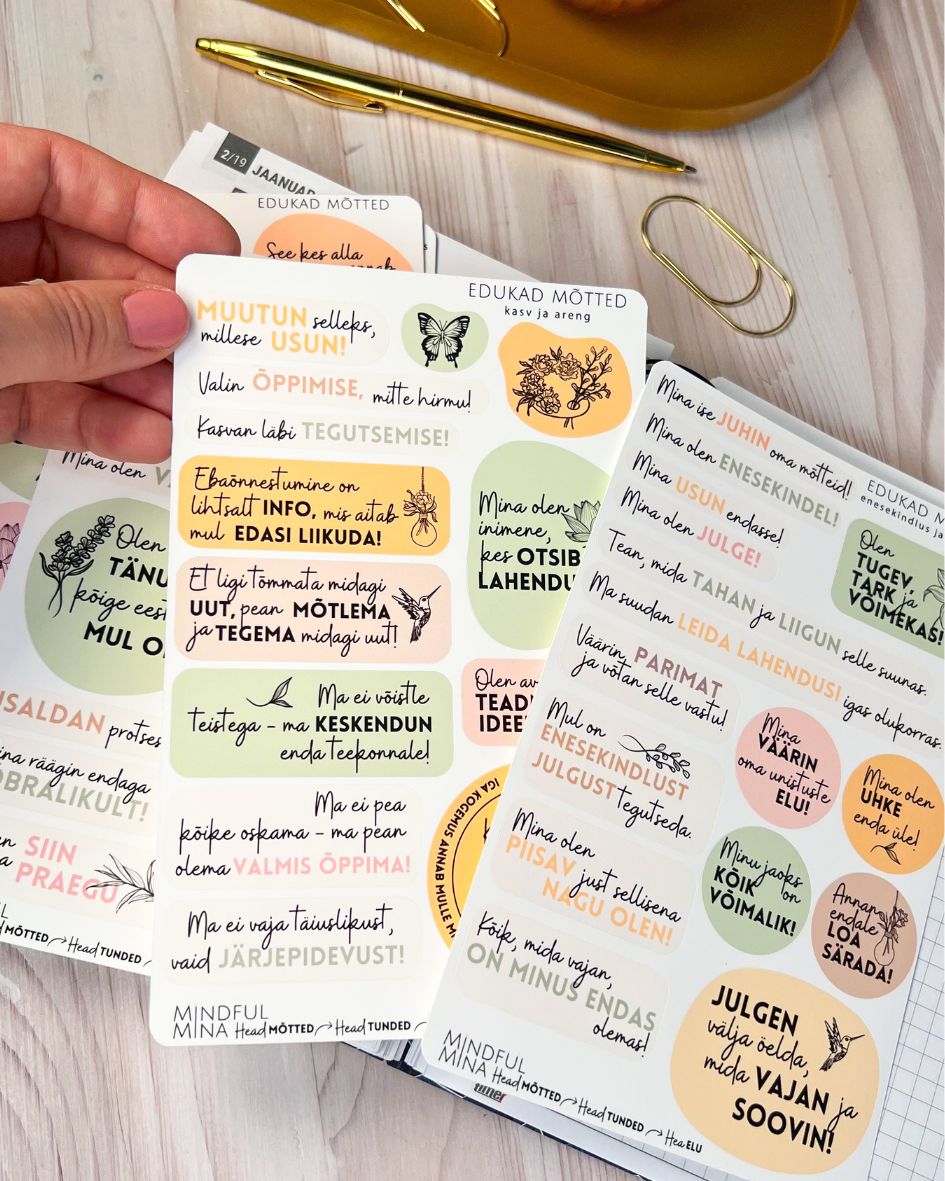 2/19 JAANUAR
EDUKAD MÕTTED
See kes alla
EDUKAD MÕTTED
kasv ja areng
MUUTUN selleks,
millesse USUN!
Valin ÕPPIMISE, mitte hirmu!
Kasvan läbi TEGUTSEMISE!
Ebaõnnestumine on
lihtsalt INFO, mis aitab
mul EDASI LIIKUDA!
Et ligi tõmmata midagi
UUT, pean MÕTLEMA
ja TEGEMA midagi uut!
Ma ei võistle
teistega – ma KESKENDUN
enda teekonnale!
Ma ei pea
kõike oskama – ma pean
olema VALMIS ÕPPIMA!
Ma ei vaja täiuslikust,
vaid JÄRJEPIDEVUST!
Mina olen
inimene,
kes OTSIB
LAHENDU
Olen av
TEADU
IDEE
IGA KOGEMUS ANNAB MULLE
MINDFUL
MINA Head MÕTTED Head TUNDED
Mina olen V
Olen
TÄNU
kõige eest
MUL O
USALDAN protses
ina räägin endaga
ÕBRALIKULT!
SIIN
PRAEGU
MÕTTED Head TUNDED
EDUKAD M
enesekindlus ja
Mina ise JUHIN oma mõtteid!
Mina olen ENESEKINDEL!
Mina USUN endasse!
Mina olen JULGE!
Tean, mida TAHAN ja LIIGUN selle suunas.
Ma suudan LEIDA LAHENDUSI igas olukorras.
Väärin PARIMAT
ja võtan selle vastu!
Mul on
ENESEKINDLUST
JULGUST tegutseda.
Mina olen
PIISAV just sellisena
NAGU OLEN!
Kõik, mida vajan,
ON MINUS ENDAS
olemas!
Olen
TUGEV,
TARK ja
VÕIMEKAS!
Mina
VÄÄRIN
oma unistuste
ELU!
Mina olen
UHKE
enda üle!
Minu jaoks
KÕIK on
VÕIMALIK!
Annan
endale
LOA
SÄRADA!
JULGEN
välja öelda,
mida VAJAN ja
SOOVIN!
MINDFUL
MINA Head MÕTTED Head TUNDED Hea ELU
time